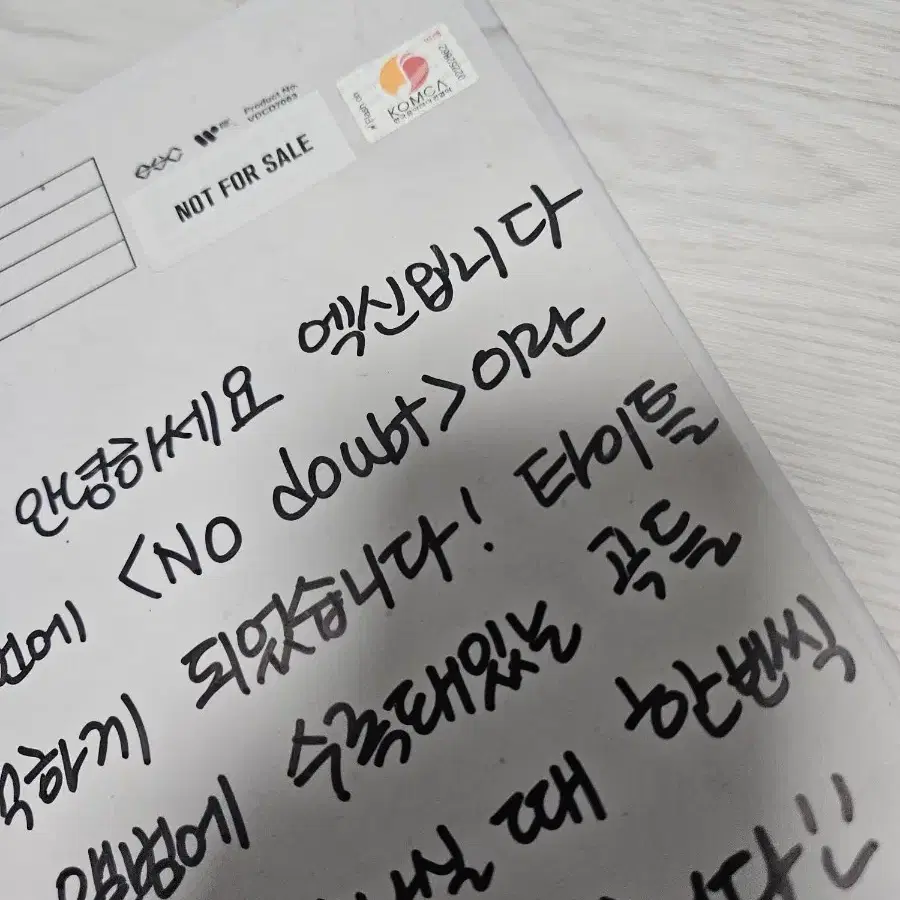 Product No.
VDCD7063
NOT FOR SALE
KOMCA
안녕하세요 엑신입니다
<No doubt>이란
하게 되었습니다! 타이틀
앨범에 수록돼있는 곡들
때 한번씩